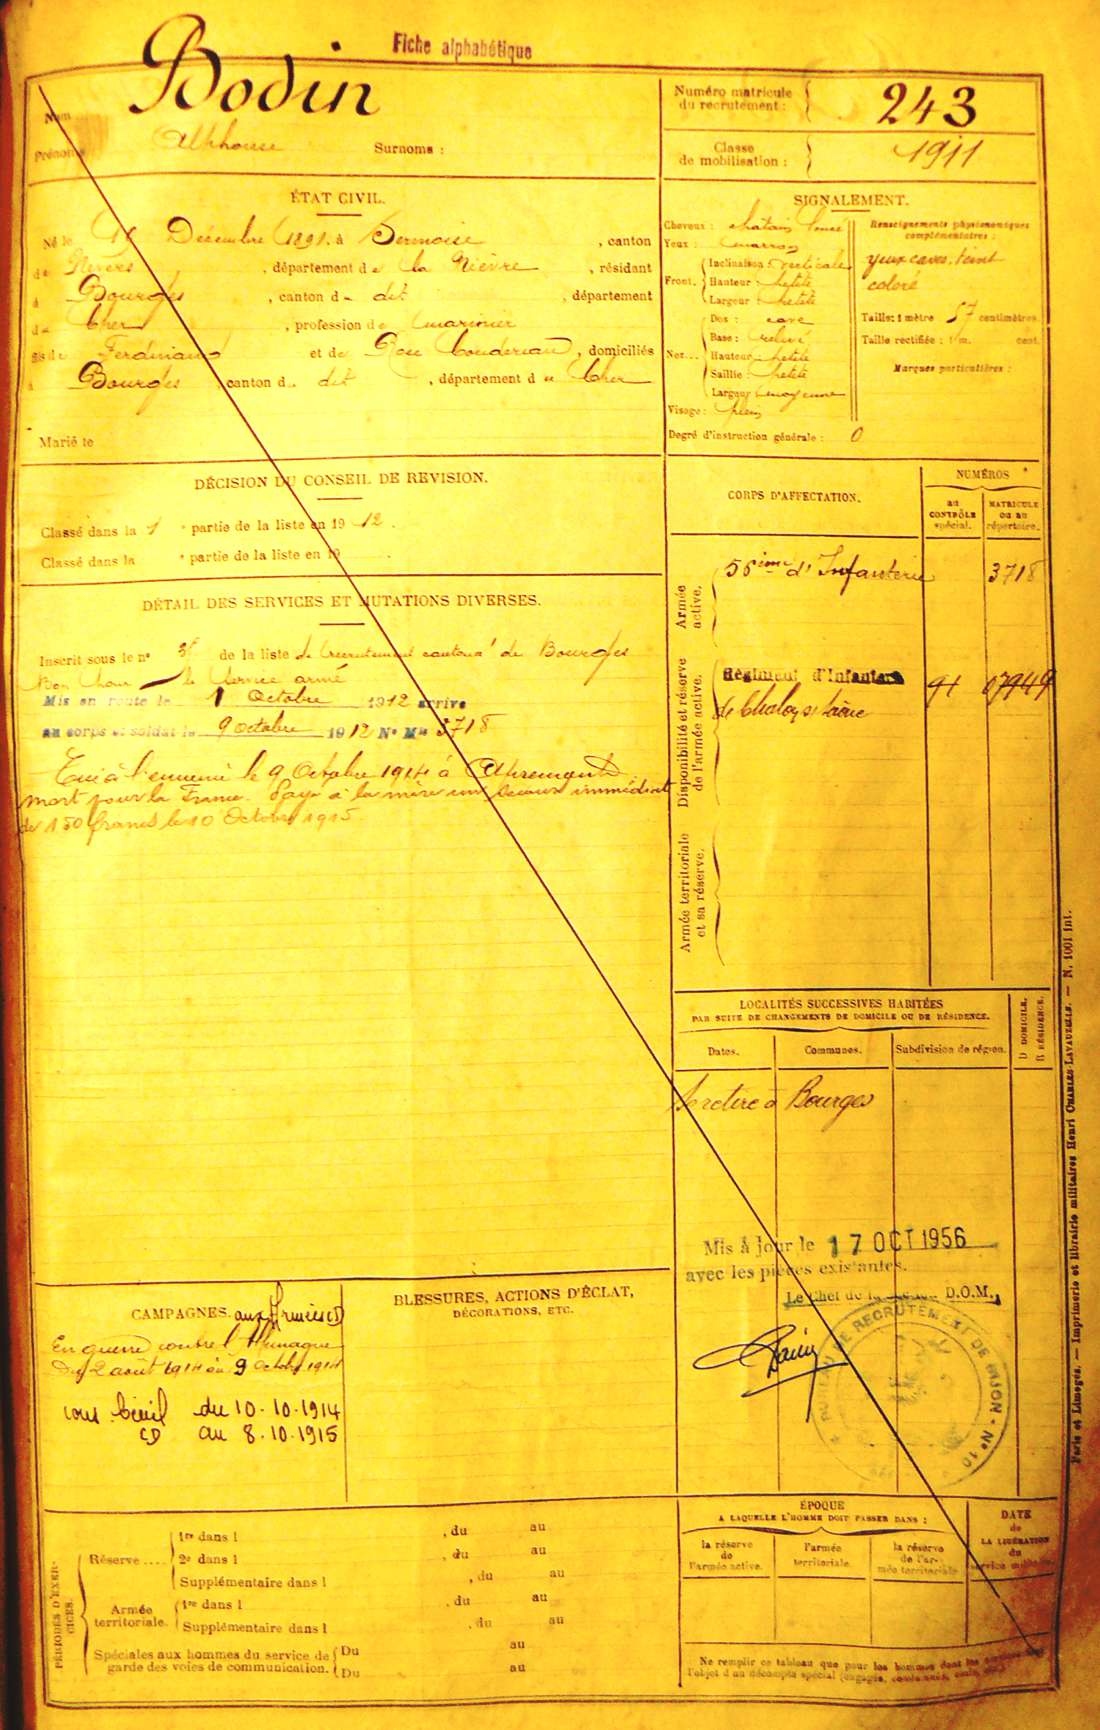 Fiche alphabétique
Bodin
Nom
Prénoms Alphonse Surnoms :
Numéro matricule
du recrutement : 243
Classe
de mobilisation : 1911
ÉTAT CIVIL.
Né le Décembre 1891, à Sermoise, canton
de Nevers, département de la Nièvre, résidant
à Bourges, canton d dit, département
du Cher, profession de marinier
fils de Ferdinand et de Rose, domiciliés
à Bourges, canton du dit, département du Cher
Marié le
SIGNALEMENT.
Cheveux : chatain foncé
Yeux : marron
Front. Inclinaison : verticale
Hauteur : petite
Largeur : petite
Nez... Dos : cave
Base : relevé
Hauteur petite
Saillie : petite
Largeur moyenne
Visage : plein
Renseignements physionomiques
complémentaires :
yeux caves, teint
coloré
Taille : 1 mètre 57 centimètres
Taille rectifiée : 1 m. cent.
Marques particulières :
Degré d'instruction générale : 0
DÉCISION DU CONSEIL DE REVISION.
Classé dans la 1 e partie de la liste en 1912.
Classé dans la e partie de la liste en 19
DÉTAIL DES SERVICES ET MUTATIONS DIVERSES.
Inscrit sous le n° de la liste de recrutement cantonal de Bourges
Bon pour le service armé
Mis en route le 1 Octobre 1912 arrivé
au corps et soldat le 9 octobre 1912 N° Mle 3718
Tué à l'ennemi le 9 Octobre 1914 à Apremont
mort pour la France. Payé à la mère un secours immédiat
de 150 francs le 10 Octobre 1915.
CORPS D'AFFECTATION.
NUMÉROS
au
CONTRÔLE
spécial.
MATRICULE
ou au
répertoire.
Armée
active.
56ème d'Infanterie 3718
Disponibilité et réserve
de l'armée active.
Régiment d'Infanterie
de Chalon s/ Saône 91 07949
Armée territoriale
et sa réserve.
LOCALITÉS SUCCESSIVES HABITÉES
PAR SUITE DE CHANGEMENTS DE DOMICILE OU DE RÉSIDENCE.
D DOMICILE.
R RÉSIDENCE.
Dates. Communes. Subdivision de région.
Se retire à Bourges
Mis à jour le 17 OCT 1956
avec les pièces existantes.
Le Chef de la D.O.M.
BUREAU DE RECRUTEMENT DE DIJON - N° 10
CAMPAGNES. aux Armées CD
En guerre contre l'Allemagne
Du 2 août 1914 au 9 Octobre 1914
CD du 10.10.1914
au 8.10.1915
BLESSURES, ACTIONS D'ÉCLAT,
DÉCORATIONS, ETC.
PÉRIODES D'EXERCICES.
Réserve .... 1re dans l , du au
2e dans l , du au
Supplémentaire dans l , du au
Armée
territoriale. 1re dans l , du au
Supplémentaire dans l , du au
Spéciales aux hommes du service de
garde des voies de communication. Du au
Du au
ÉPOQUE
A LAQUELLE L'HOMME DOIT PASSER DANS :
la réserve
de
l'armée active.
l'armée
territoriale.
la réserve
de l'ar-
mée territoriale
DATE
de
LA LIBÉRATION
du
service militaire.
Ne remplir ce tableau que pour les hommes dont les services
l'objet d'un décompte spécial (engagés,
Paris et Limoges. — Imprimerie et librairie militaires Henri CHARLES-LAVAUZELLE. — N. 1001 int.